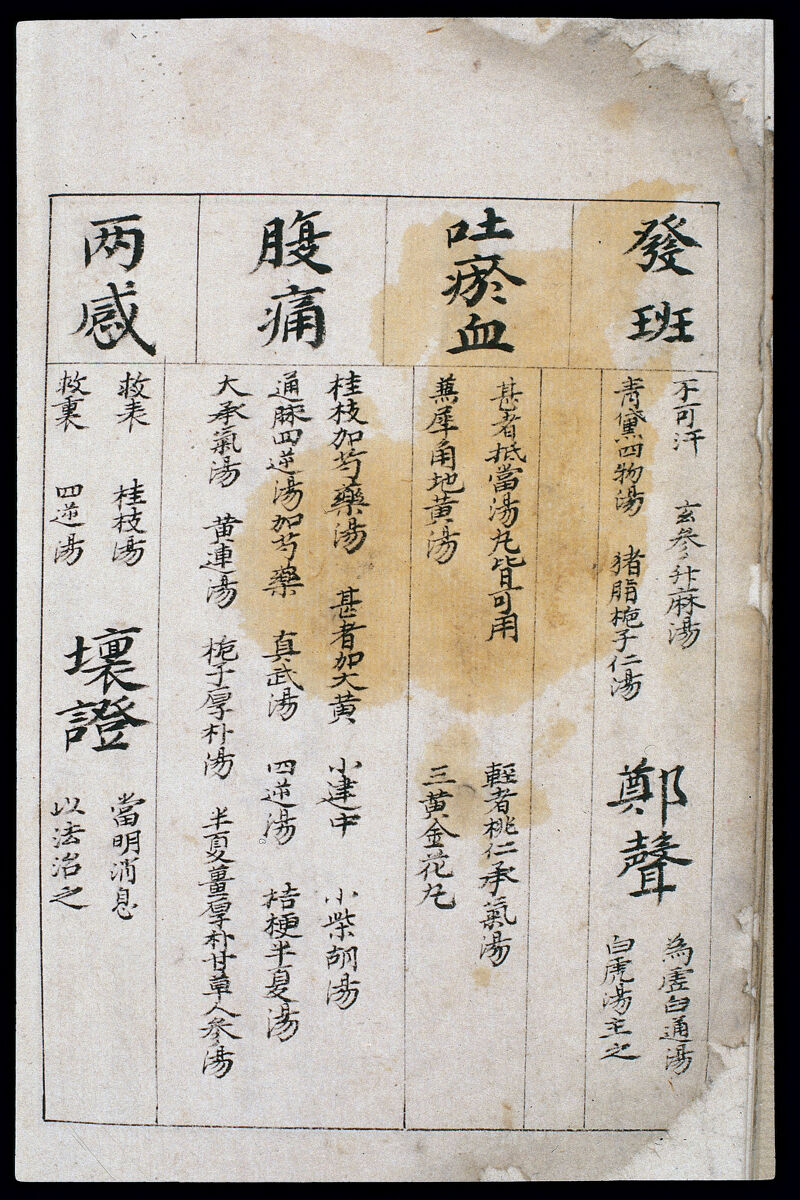 發班
不可汗　玄參升麻湯
青黛四物湯　猪脂梔子仁湯
鄭聲
為虛白通湯
白虎湯主之
吐瘀血
甚者抵當湯丸皆可用　輕者桃仁承氣湯
蒸犀角地黄湯　三黄金花丸
腹痛
桂枝加芍藥湯　甚者加大黄　小建中　小柴胡湯
通脉四逆湯加芍藥　真武湯　四逆湯　桔梗半夏湯
大承氣湯　黄連湯　梔子厚朴湯　半夏薑厚朴甘草人參湯
两感
救表　桂枝湯
救裏　四逆湯
壞證
當明消息
以法治之